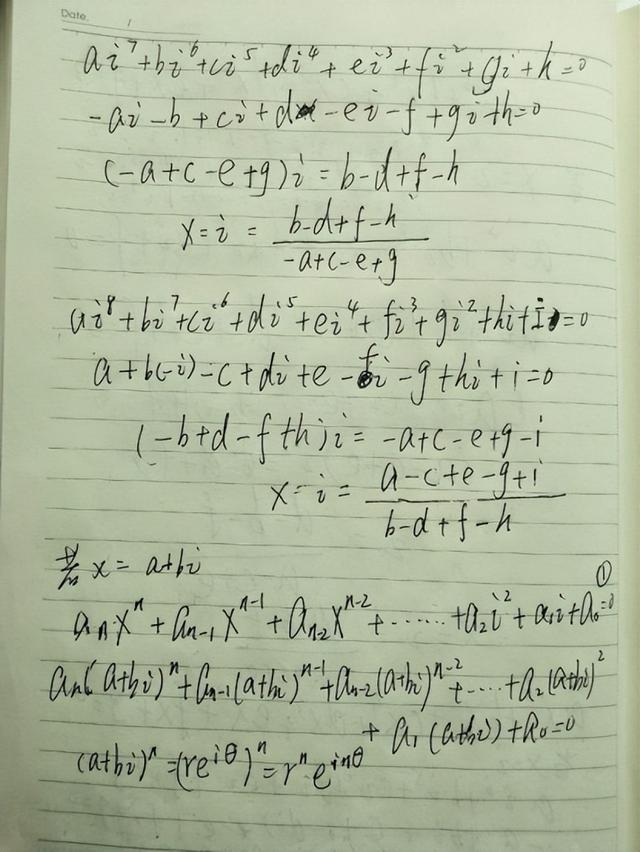 Date.
ai⁷+bi⁶+ci⁵+di⁴+ei³+fi²+gi+h=0
-ai-b+ci+d-ei-f+gi+h=0
(-a+c-e+g)i=b-d+f-h
x=i=\frac{b-d+f-h}{-a+c-e+g}
ai⁸+bi⁷+ci⁶+di⁵+ei⁴+fi³+gi²+hi+I=0
a+b(-i)-c+di+e-fi-g+hi+i=0
(-b+d-f+h)i=-a+c-e+g-i
x=i=\frac{a-c+e-g+i}{b-d+f-h}
若x=a+bi
①
aₙxⁿ+aₙ₋₁xⁿ⁻¹+aₙ₋₂xⁿ⁻²+……+a₂i²+a₁i+a₀=0
aₙ(a+bi)ⁿ+aₙ₋₁(a+bi)ⁿ⁻¹+aₙ₋₂(a+bi)ⁿ⁻²+……+a₂(a+bi)²
+a₁(a+bi)+a₀=0
(a+bi)ⁿ=(re^{iθ})ⁿ=rⁿe^{inθ}